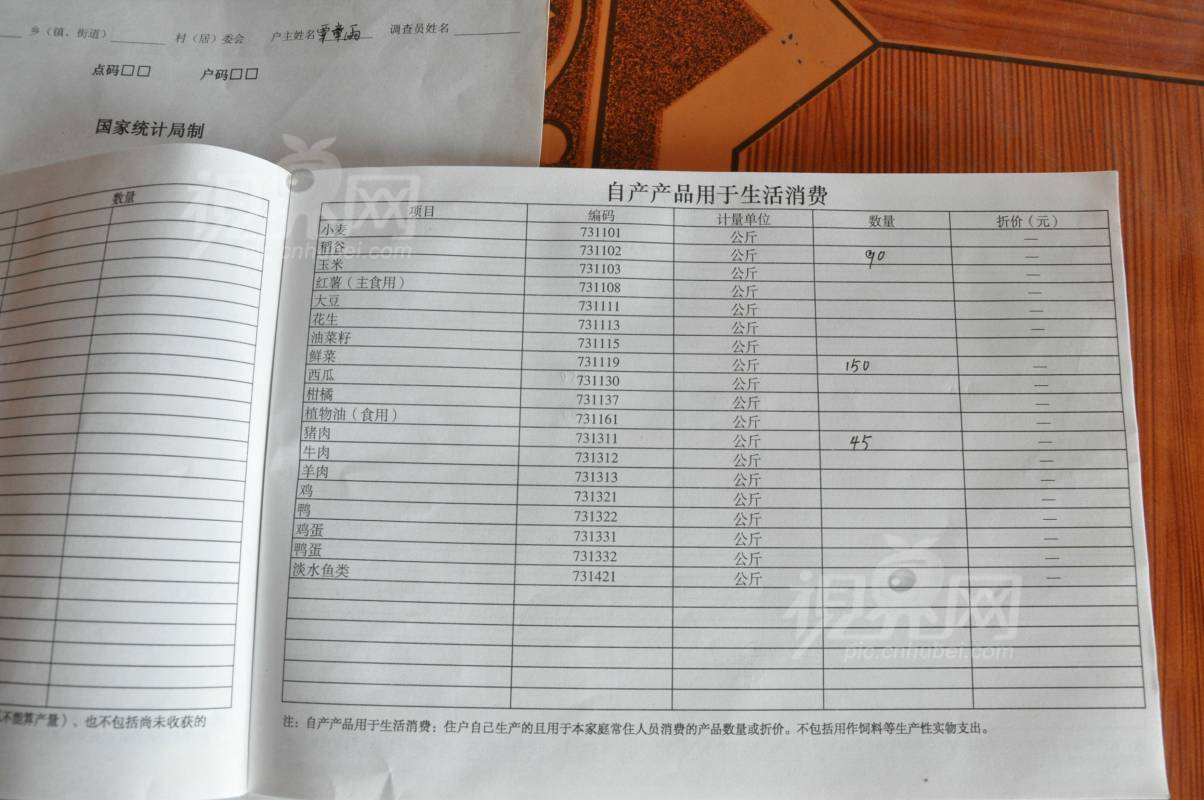 乡（镇、街道） 村（居）委会 户主姓名 覃章雨 调查员姓名
点码□□ 户码□□
国家统计局制
数量
不能算产量）、也不包括尚未收获的
自产产品用于生活消费
项目 编码 计量单位 数量 折价（元）
小麦 731101 公斤 —
稻谷 731102 公斤 90 —
玉米 731103 公斤 —
红薯（主食用） 731108 公斤 —
大豆 731111 公斤 —
花生 731113 公斤 —
油菜籽 731115 公斤
鲜菜 731119 公斤 150 —
西瓜 731130 公斤 —
柑橘 731137 公斤 —
植物油（食用） 731161 公斤 —
猪肉 731311 公斤 45 —
牛肉 731312 公斤 —
羊肉 731313 公斤 —
鸡 731321 公斤 —
鸭 731322 公斤 —
鸡蛋 731331 公斤 —
鸭蛋 731332 公斤 —
淡水鱼类 731421 公斤 —
注：自产产品用于生活消费：住户自己生产的且用于本家庭常住人员消费的产品数量或折价。不包括用作饲料等生产性实物支出。
视界网
pic.cnhubei.com
视界网
pic.cnhubei.com